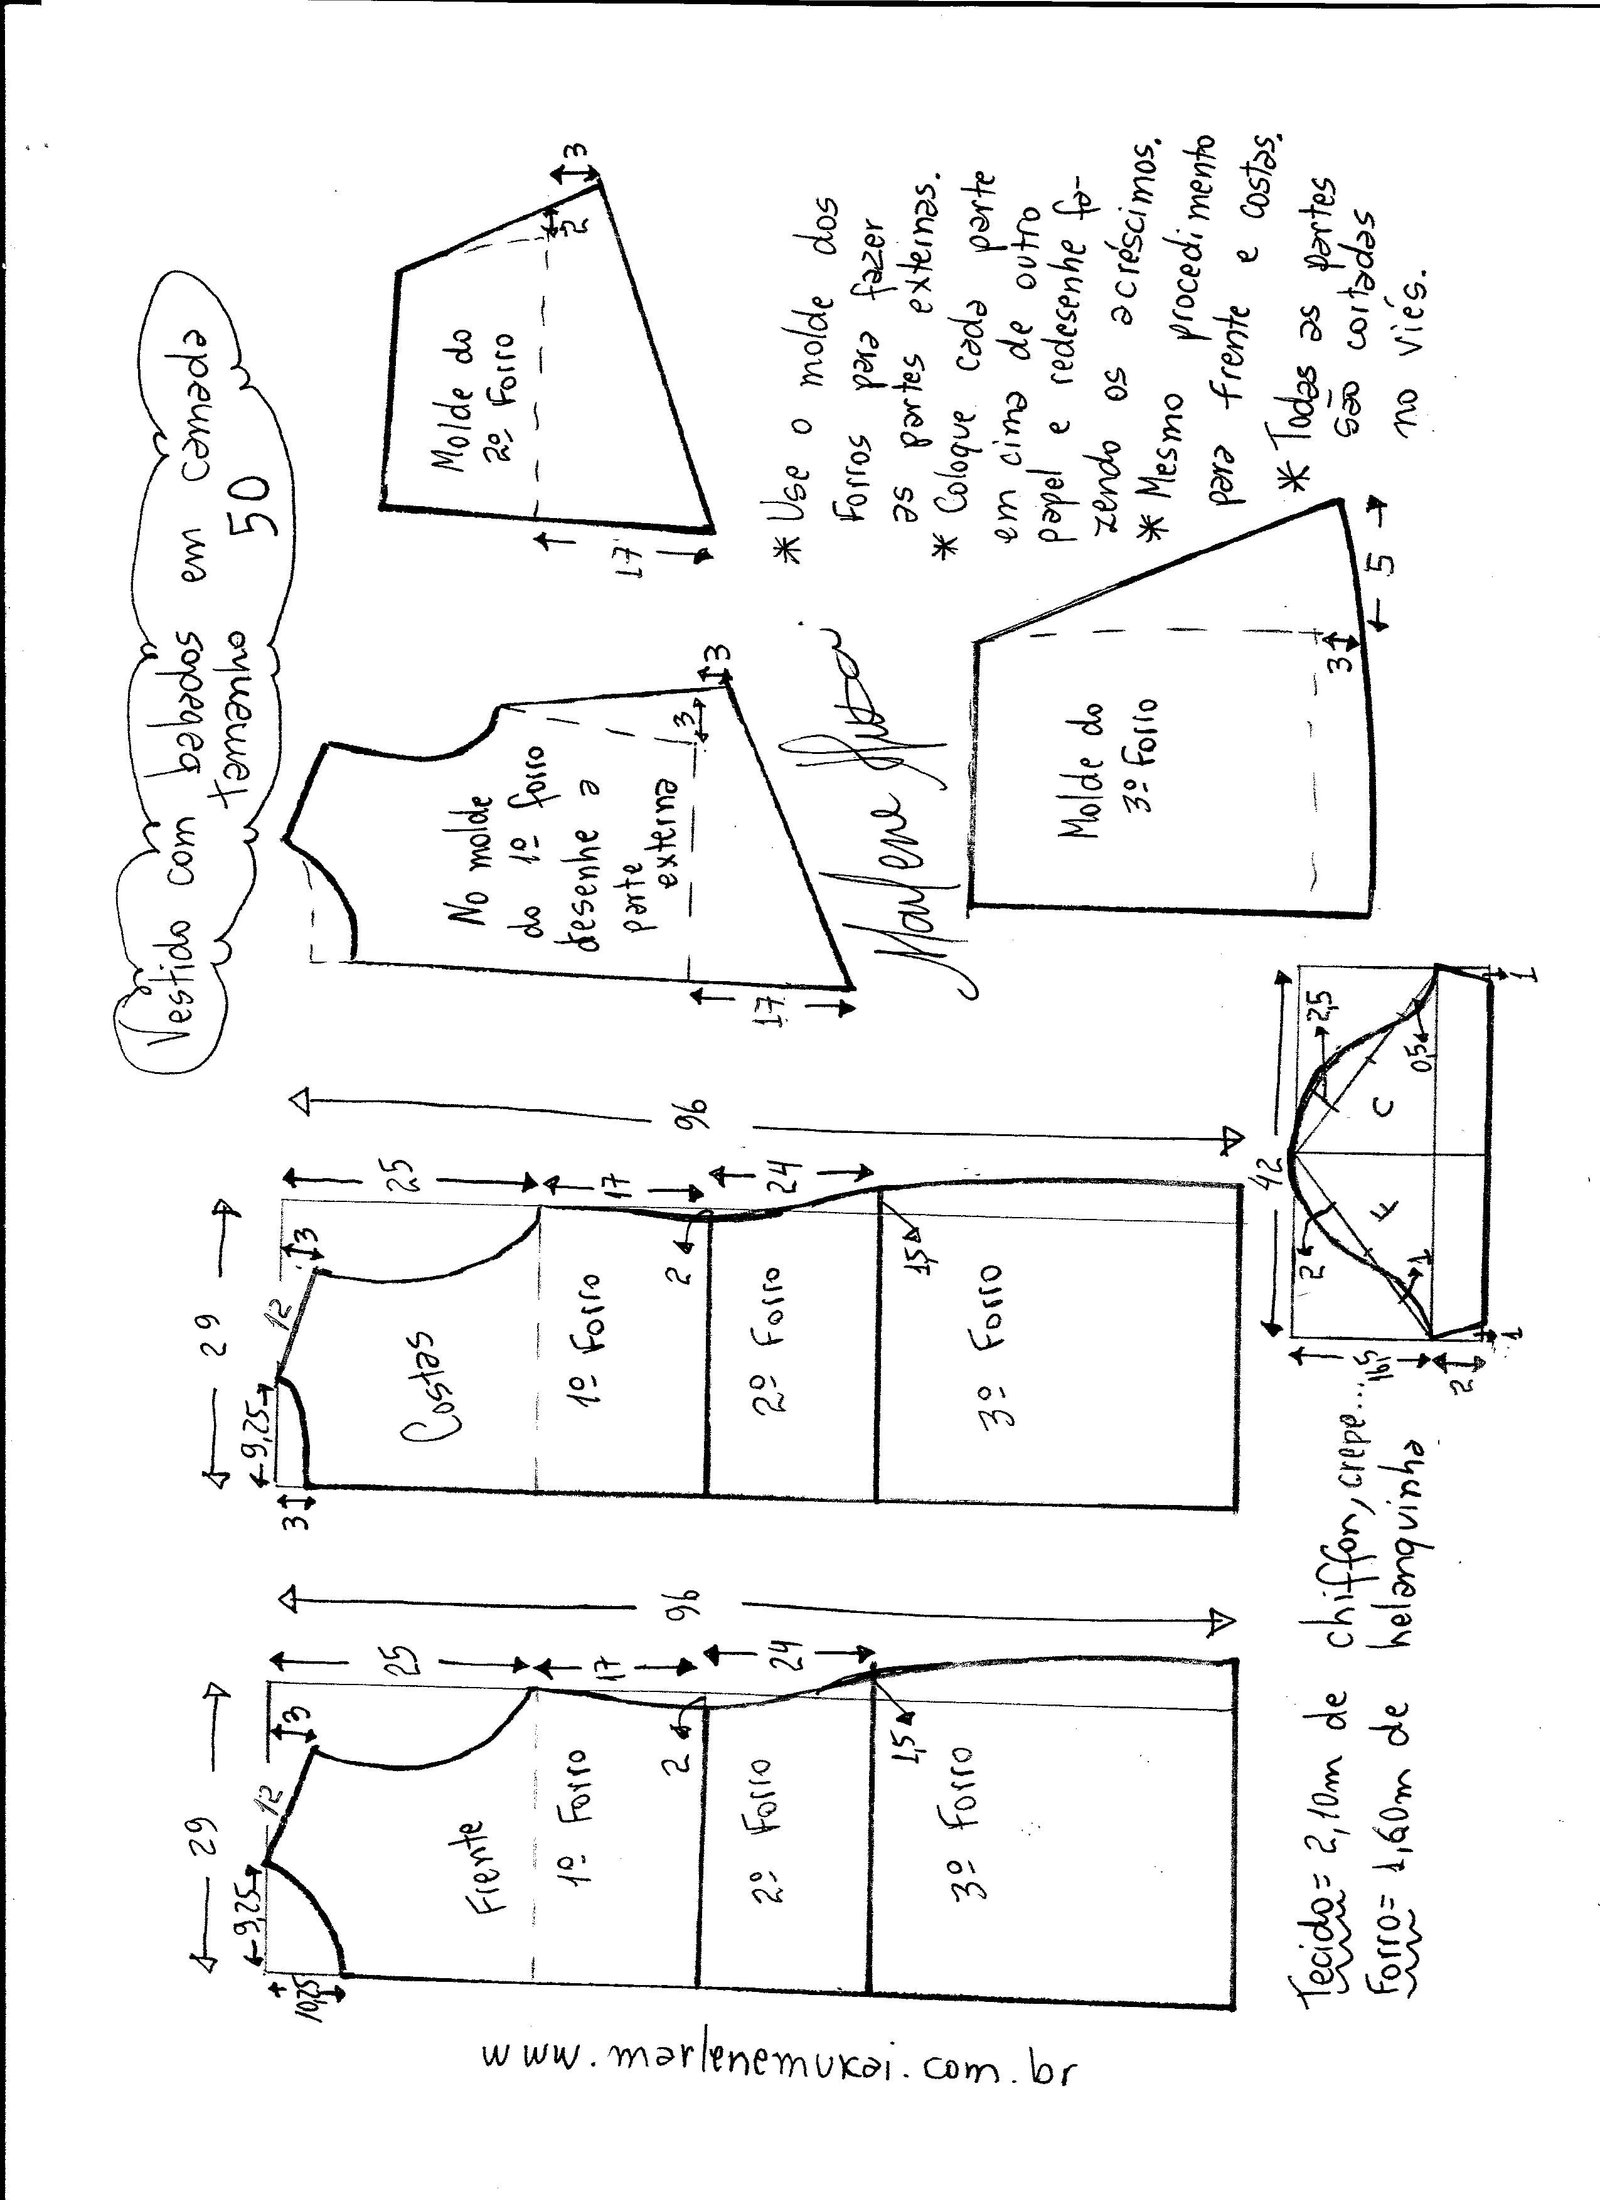 Vestido com babados em camada
tamanho 50
www.marlenemukai.com.br
29
9,25
12
3
10,25
25
17
24
96
2
1,5
Frente
1º Forro
2º Forro
3º Forro
29
9,25
12
3
3
25
17
24
96
2
1,5
Costas
1º Forro
2º Forro
3º Forro
No molde
do 1º forro
desenhe a
parte
externa
17
3
3
Molde do
2º Forro
17
2
3
Marlene Mukai
Molde do
3º Forro
3
5
* Use o molde dos
Forros para fazer
as partes externas.
* Coloque cada parte
em cima de outro
papel e redesenhe fa-
zendo os acréscimos.
* Mesmo procedimento
para frente e costas.
* Todas as partes
são cortadas
no viés.
42
16,5
2
2
1
1
F
C
2,5
0,5
1
Tecido = 2,10m de chiffon, crepe...
Forro = 1,60m de helanquinha